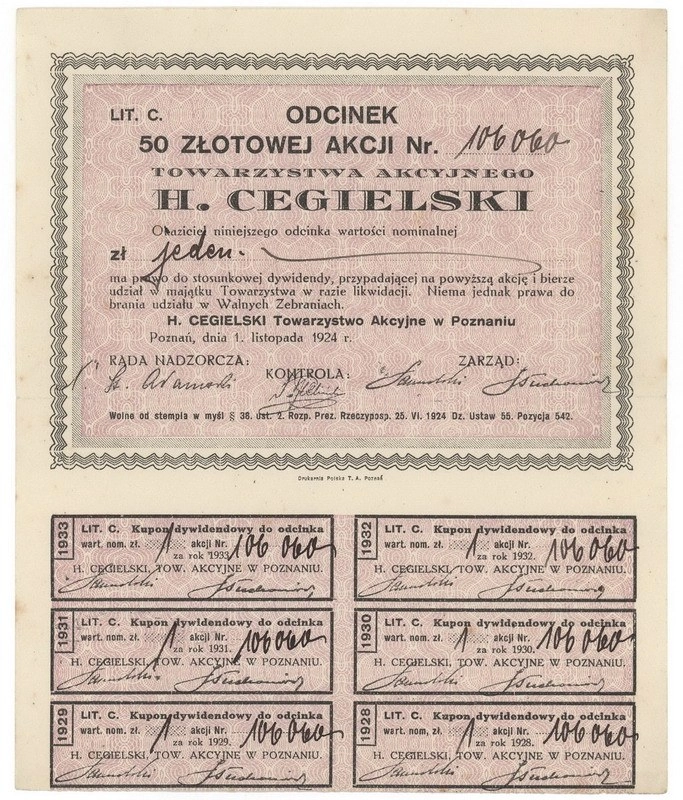 LIT. C.
ODCINEK
50 ZŁOTOWEJ AKCJI Nr. 106060
TOWARZYSTWA AKCYJNEGO
H. CEGIELSKI
Okaziciel niniejszego odcinka wartości nominalnej
zł jeden.
ma prawo do stosunkowej dywidendy, przypadającej na powyższą akcję i bierze
udział w majątku Towarzystwa w razie likwidacji. Niema jednak prawa do
brania udziału w Walnych Zebraniach.
H. CEGIELSKI Towarzystwo Akcyjne w Poznaniu
Poznań, dnia 1. listopada 1924 r.
RADA NADZORCZA: KONTROLA: ZARZĄD:
St. Adamski
Wolne od stempla w myśl § 38. ust. 2. Rozp. Prez. Rzeczyposp. 25. VI. 1924 Dz. Ustaw 55. Pozycja 542.
Drukarnia Polska T. A. Poznań
1933
LIT. C. Kupon dywidendowy do odcinka
wart. nom. zł. 1 akcji Nr. 106060
za rok 1933.
H. CEGIELSKI, TOW. AKCYJNE W POZNANIU.
1932
LIT. C. Kupon dywidendowy do odcinka
wart. nom. zł. 1 akcji Nr. 106060
za rok 1932.
H. CEGIELSKI, TOW. AKCYJNE W POZNANIU.
1931
LIT. C. Kupon dywidendowy do odcinka
wart. nom. zł. 1 akcji Nr. 106060
za rok 1931.
H. CEGIELSKI, TOW. AKCYJNE W POZNANIU.
1930
LIT. C. Kupon dywidendowy do odcinka
wart. nom. zł. 1 akcji Nr. 106060
za rok 1930.
H. CEGIELSKI, TOW. AKCYJNE W POZNANIU.
1929
LIT. C. Kupon dywidendowy do odcinka
wart. nom. zł. 1 akcji Nr. 106060
za rok 1929.
H. CEGIELSKI, TOW. AKCYJNE W POZNANIU.
1928
LIT. C. Kupon dywidendowy do odcinka
wart. nom. zł. 1 akcji Nr. 106060
za rok 1928.
H. CEGIELSKI, TOW. AKCYJNE W POZNANIU.